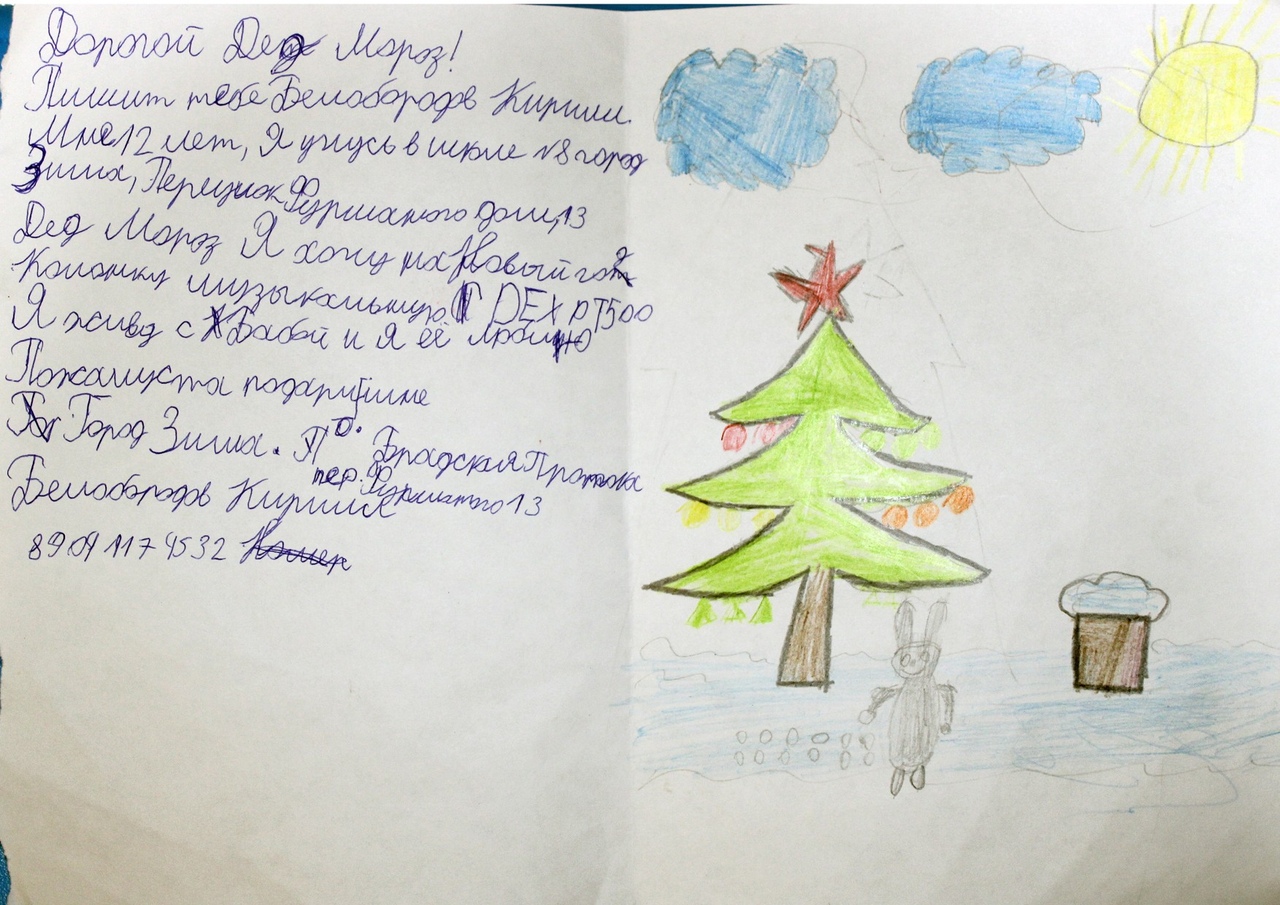 Дорогой Дед Мороз!
Пишит тебе Белобородов Кирилл.
Мне 12 лет, Я учусь в школе №8 город
Зима, Переулок Фурманого дом,13
Дед Мороз Я хочу на Новый год
Колонку музыкальную DEXP T500
Я живу с Бабой и Я её люблю
Пожалуйста подари мне
Город Зима. П Брадская Протока
пер. Фурманого 13
Белобородов Кирилл
89041174532